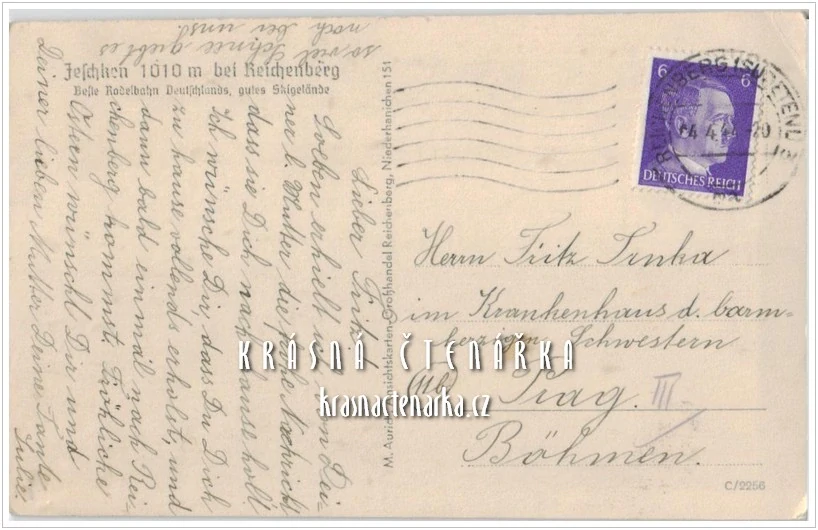 Jeschken 1010 m bei Reichenberg
Beste Rodelbahn Deutschlands, gutes Skigelände
so viel Schnee giebt es
noch bei uns!
Lieber
Soeben erhielt von Dei-
ner l. Mutter die Nachricht
dass sie Dich nach Hause holt
Ich wünsche Dir, dass Du Dich
zu hause vollends erholst, und
dann bald einmal nach Rei-
chenberg kommst. Fröhliche
Ostern wünscht Dir und
Deiner lieben Mutter Deine Tante
Julie.
M. Aurich Ansichtskarten-Großhandel Reichenberg, Niederhanichen 151
6 6
DEUTSCHES REICH
REICHENBERG (SUDETENL.)
4.4.44-20
Herrn Fritz Trnka
im Krankenhaus d. barm-
herzigen Schwestern
Prag. III
Böhmen.
C/2256
KRÁSNÁ ČTENÁŘKA
krasnactenarka.cz